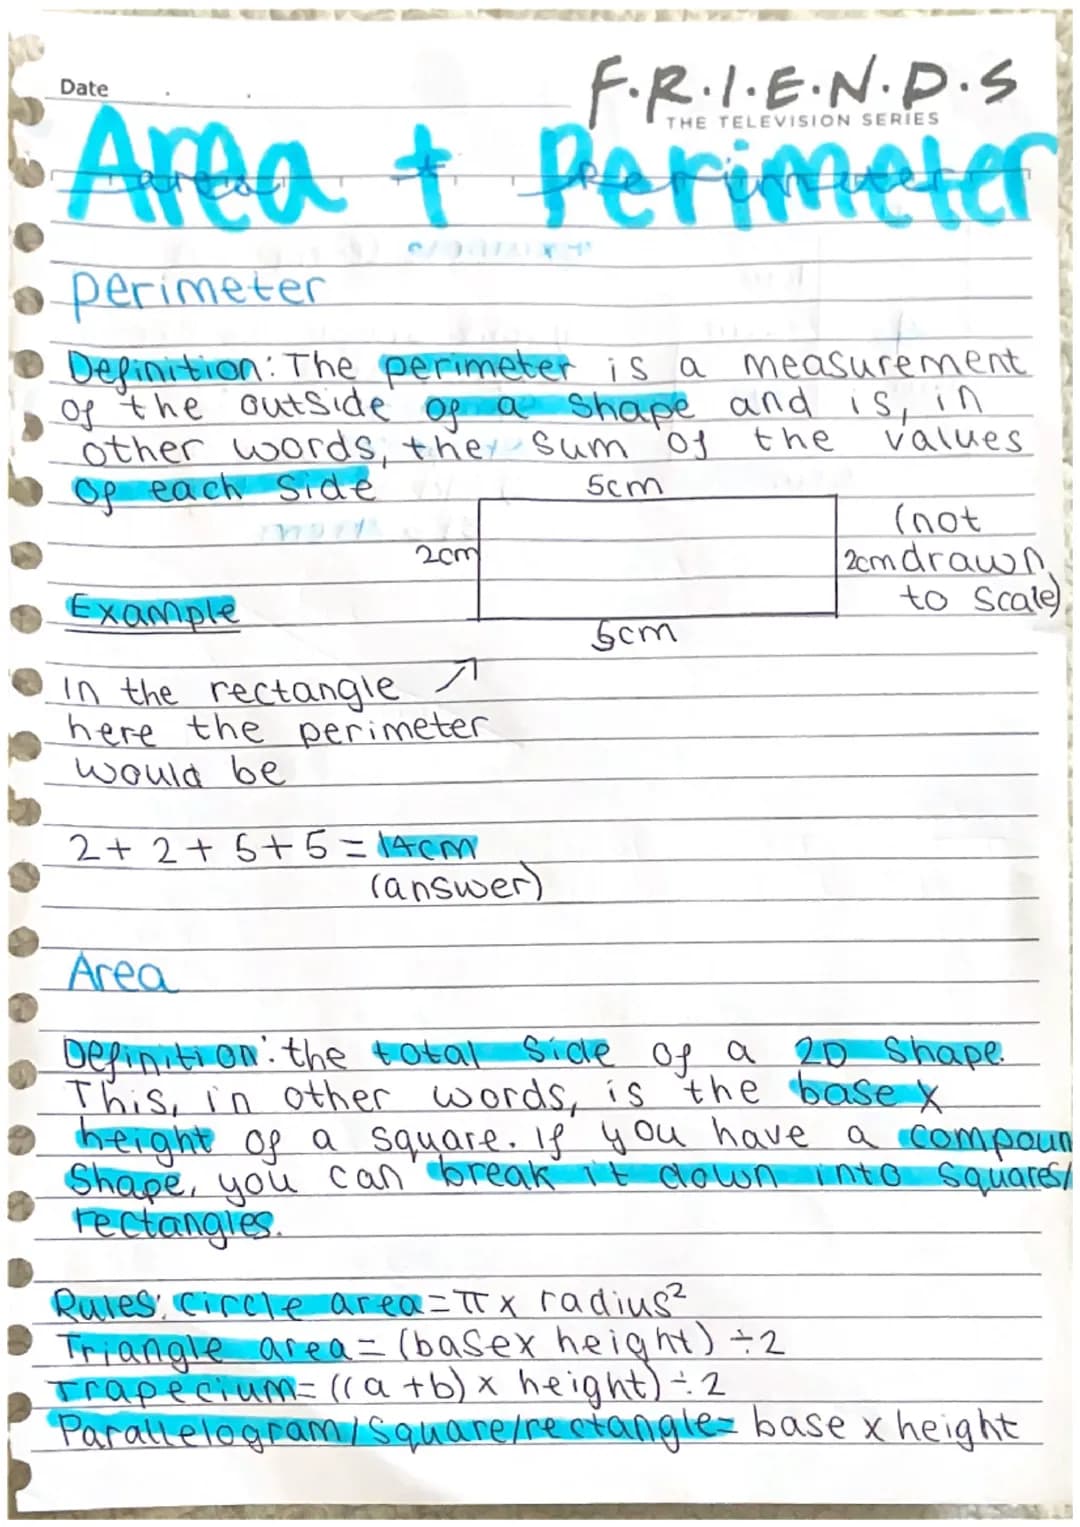 Date
F.R.I.E.N.D.S
THE TELEVISION SERIES
Area + Perimeter
perimeter
Definition: The perimeter is a measurement
of the outside of a shape and is, in
other words, the sum of the values
of each side
5cm
(not
2cm
2cm drawn
to scale)
Example
5cm
In the rectangle
here the perimeter
would be
2 + 2 + 5 + 5 = 14cm
(answer)
Area
Definition: the total side of a 2D shape.
This, in other words, is the base x
height of a square. If you have a compoun
shape, you can break it down into squares/
rectangles.
Rules: circle area = π x radius²
Triangle area = (base x height) ÷ 2
Trapecium = ((a + b) x height) ÷ 2
Parallelogram/square/rectangle = base x height